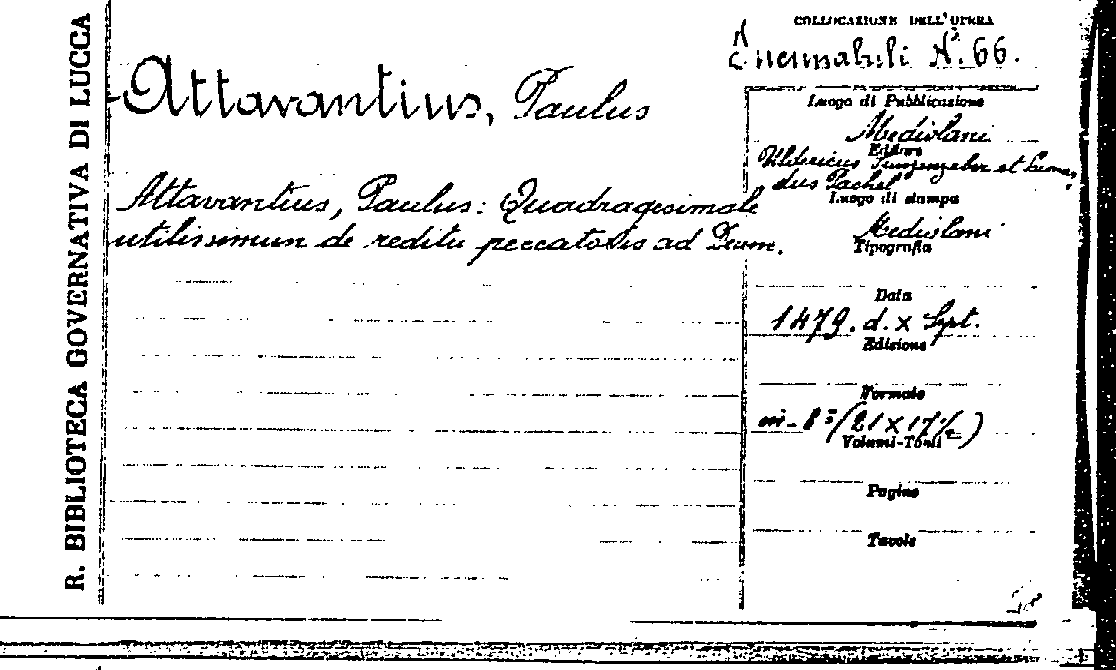 R. BIBLIOTECA GOVERNATIVA DI LUCCA
COLLOCAZIONE DELL'OPERA
Incunabili N.º 66.
Attavantius, Paulus
Attavantius, Paulus: Quadragesimale
utilissimum de reditu peccatoris ad Deum.
Luogo di Pubblicazione
Mediolani
Editore
et Leonar
dus Pachel
Luogo di stampa
Mediolani
Tipografia
Data
1479. d. x Sept.
Edizione
Formato
in-8º (21 x 17½)
Volumi-Tomi
Pagine
Tavole